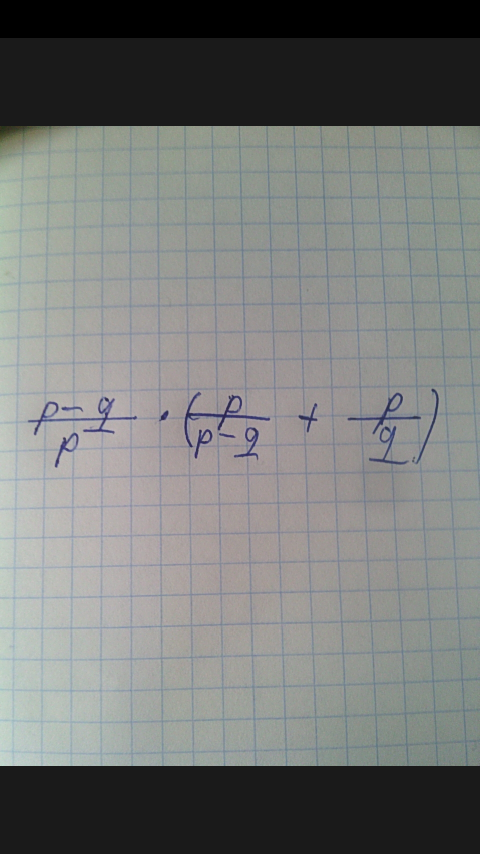 (p - q)/p · (p/(p - q) + p/q)